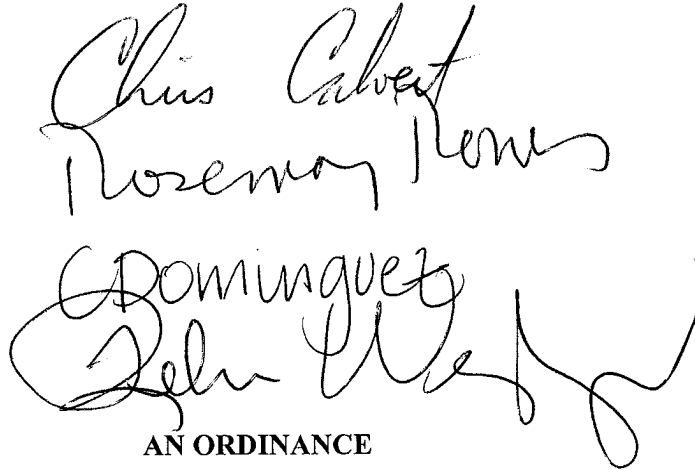 Chris Calvert
Rosemary Romero
CDominguez
AN ORDINANCE